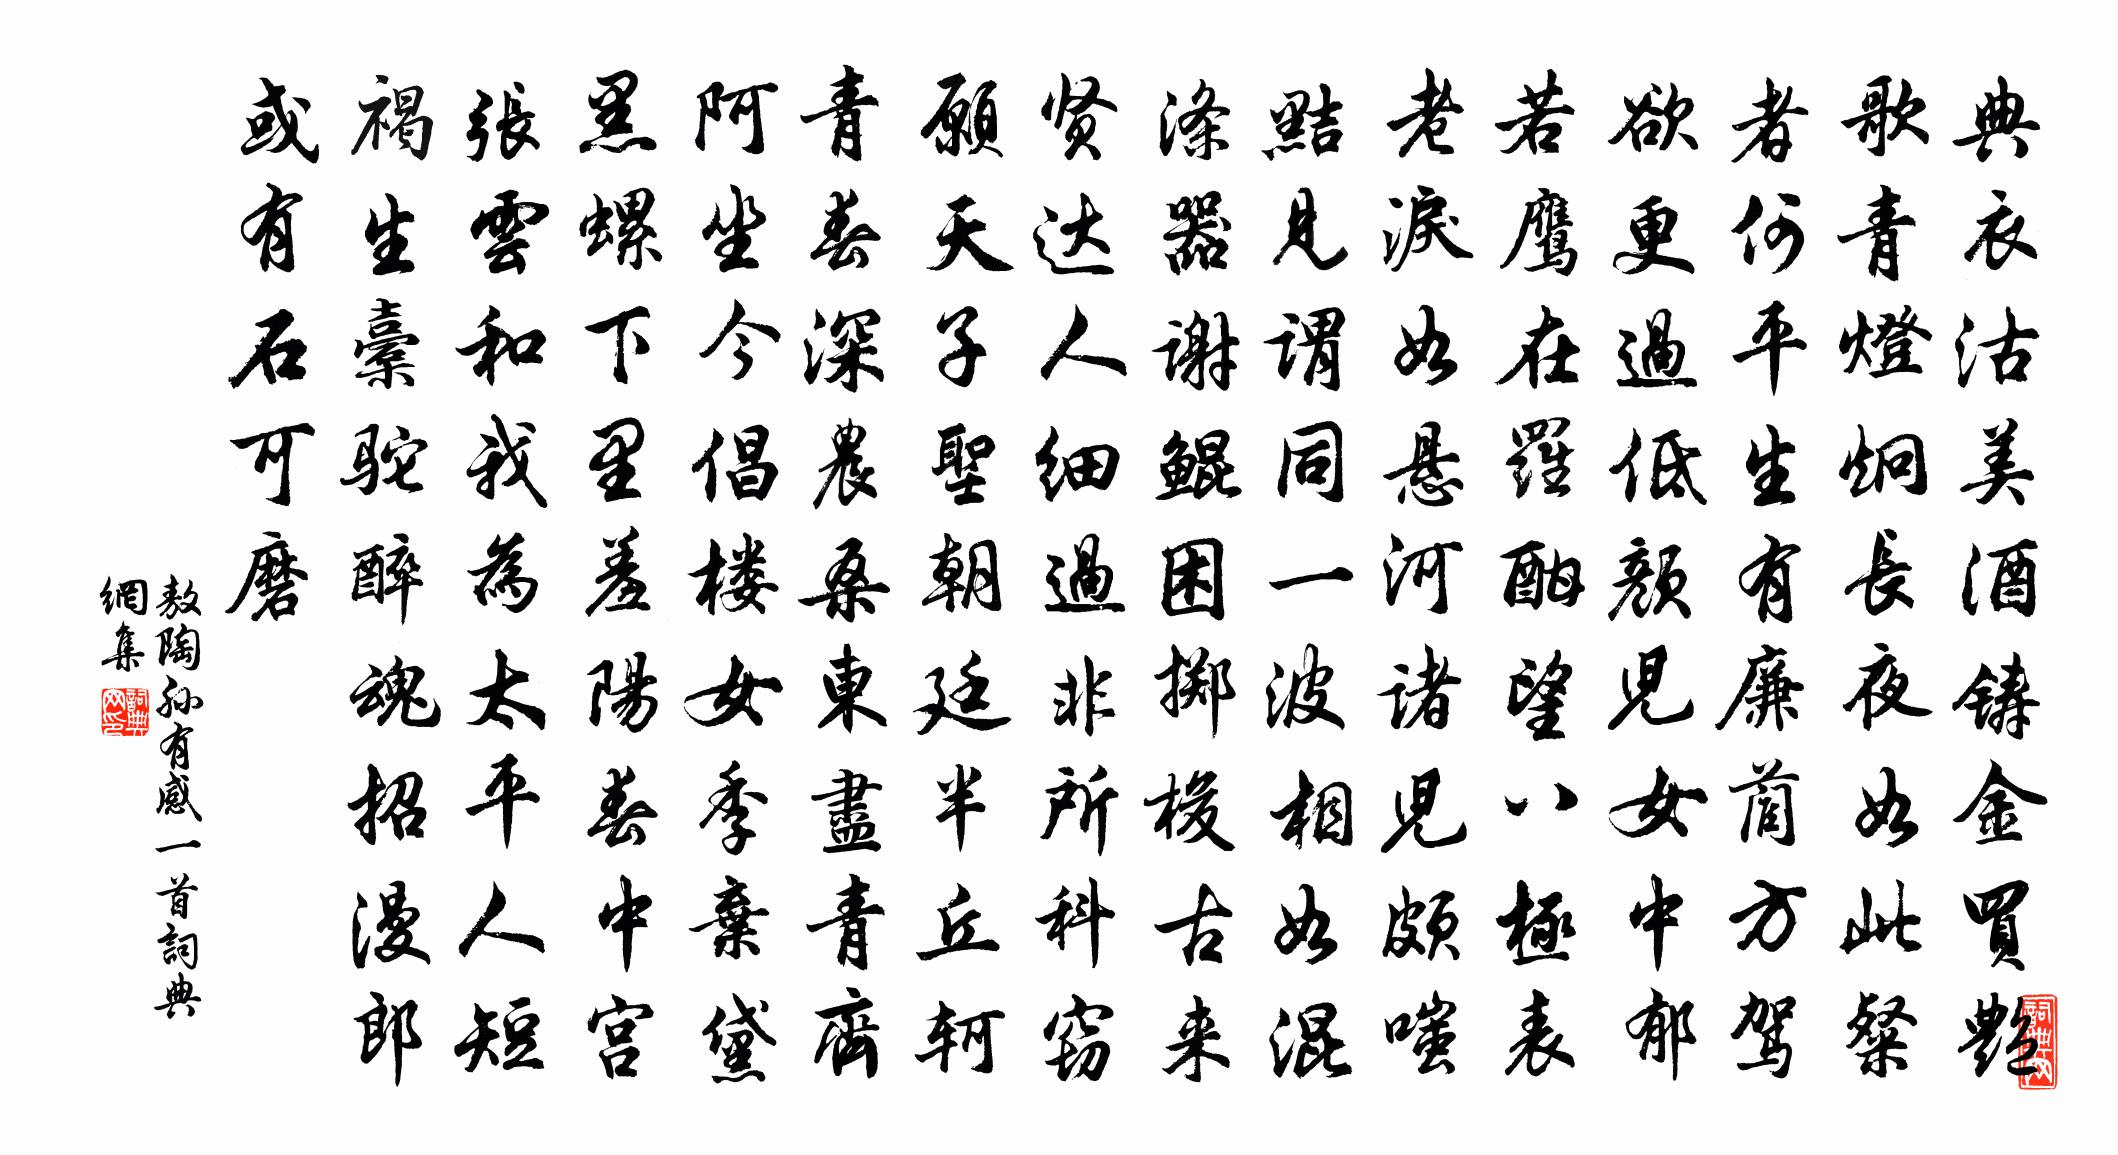 典衣沽美酒鑄金買艷
歌青燈炯長夜如此粲
者何平生有廉藺方駕
欲更過低顏兒女中郁
若鷹在羅酣望八極表
老淚如懸河諸兒頗嗤
黠見謂同一波相如混
滌器谢鲲困掷梭古来
贤达人细過非所科窃
願天子聖朝廷半丘轲
青春深農桑東盡青齊
阿坐今倡楼女季棄黛
黑螺下里羞陽春中宫
張雲和我為太平人短
褐生橐驼醉魂招漫郎
或有石可磨
敖陶孙有感一首詞典
網集